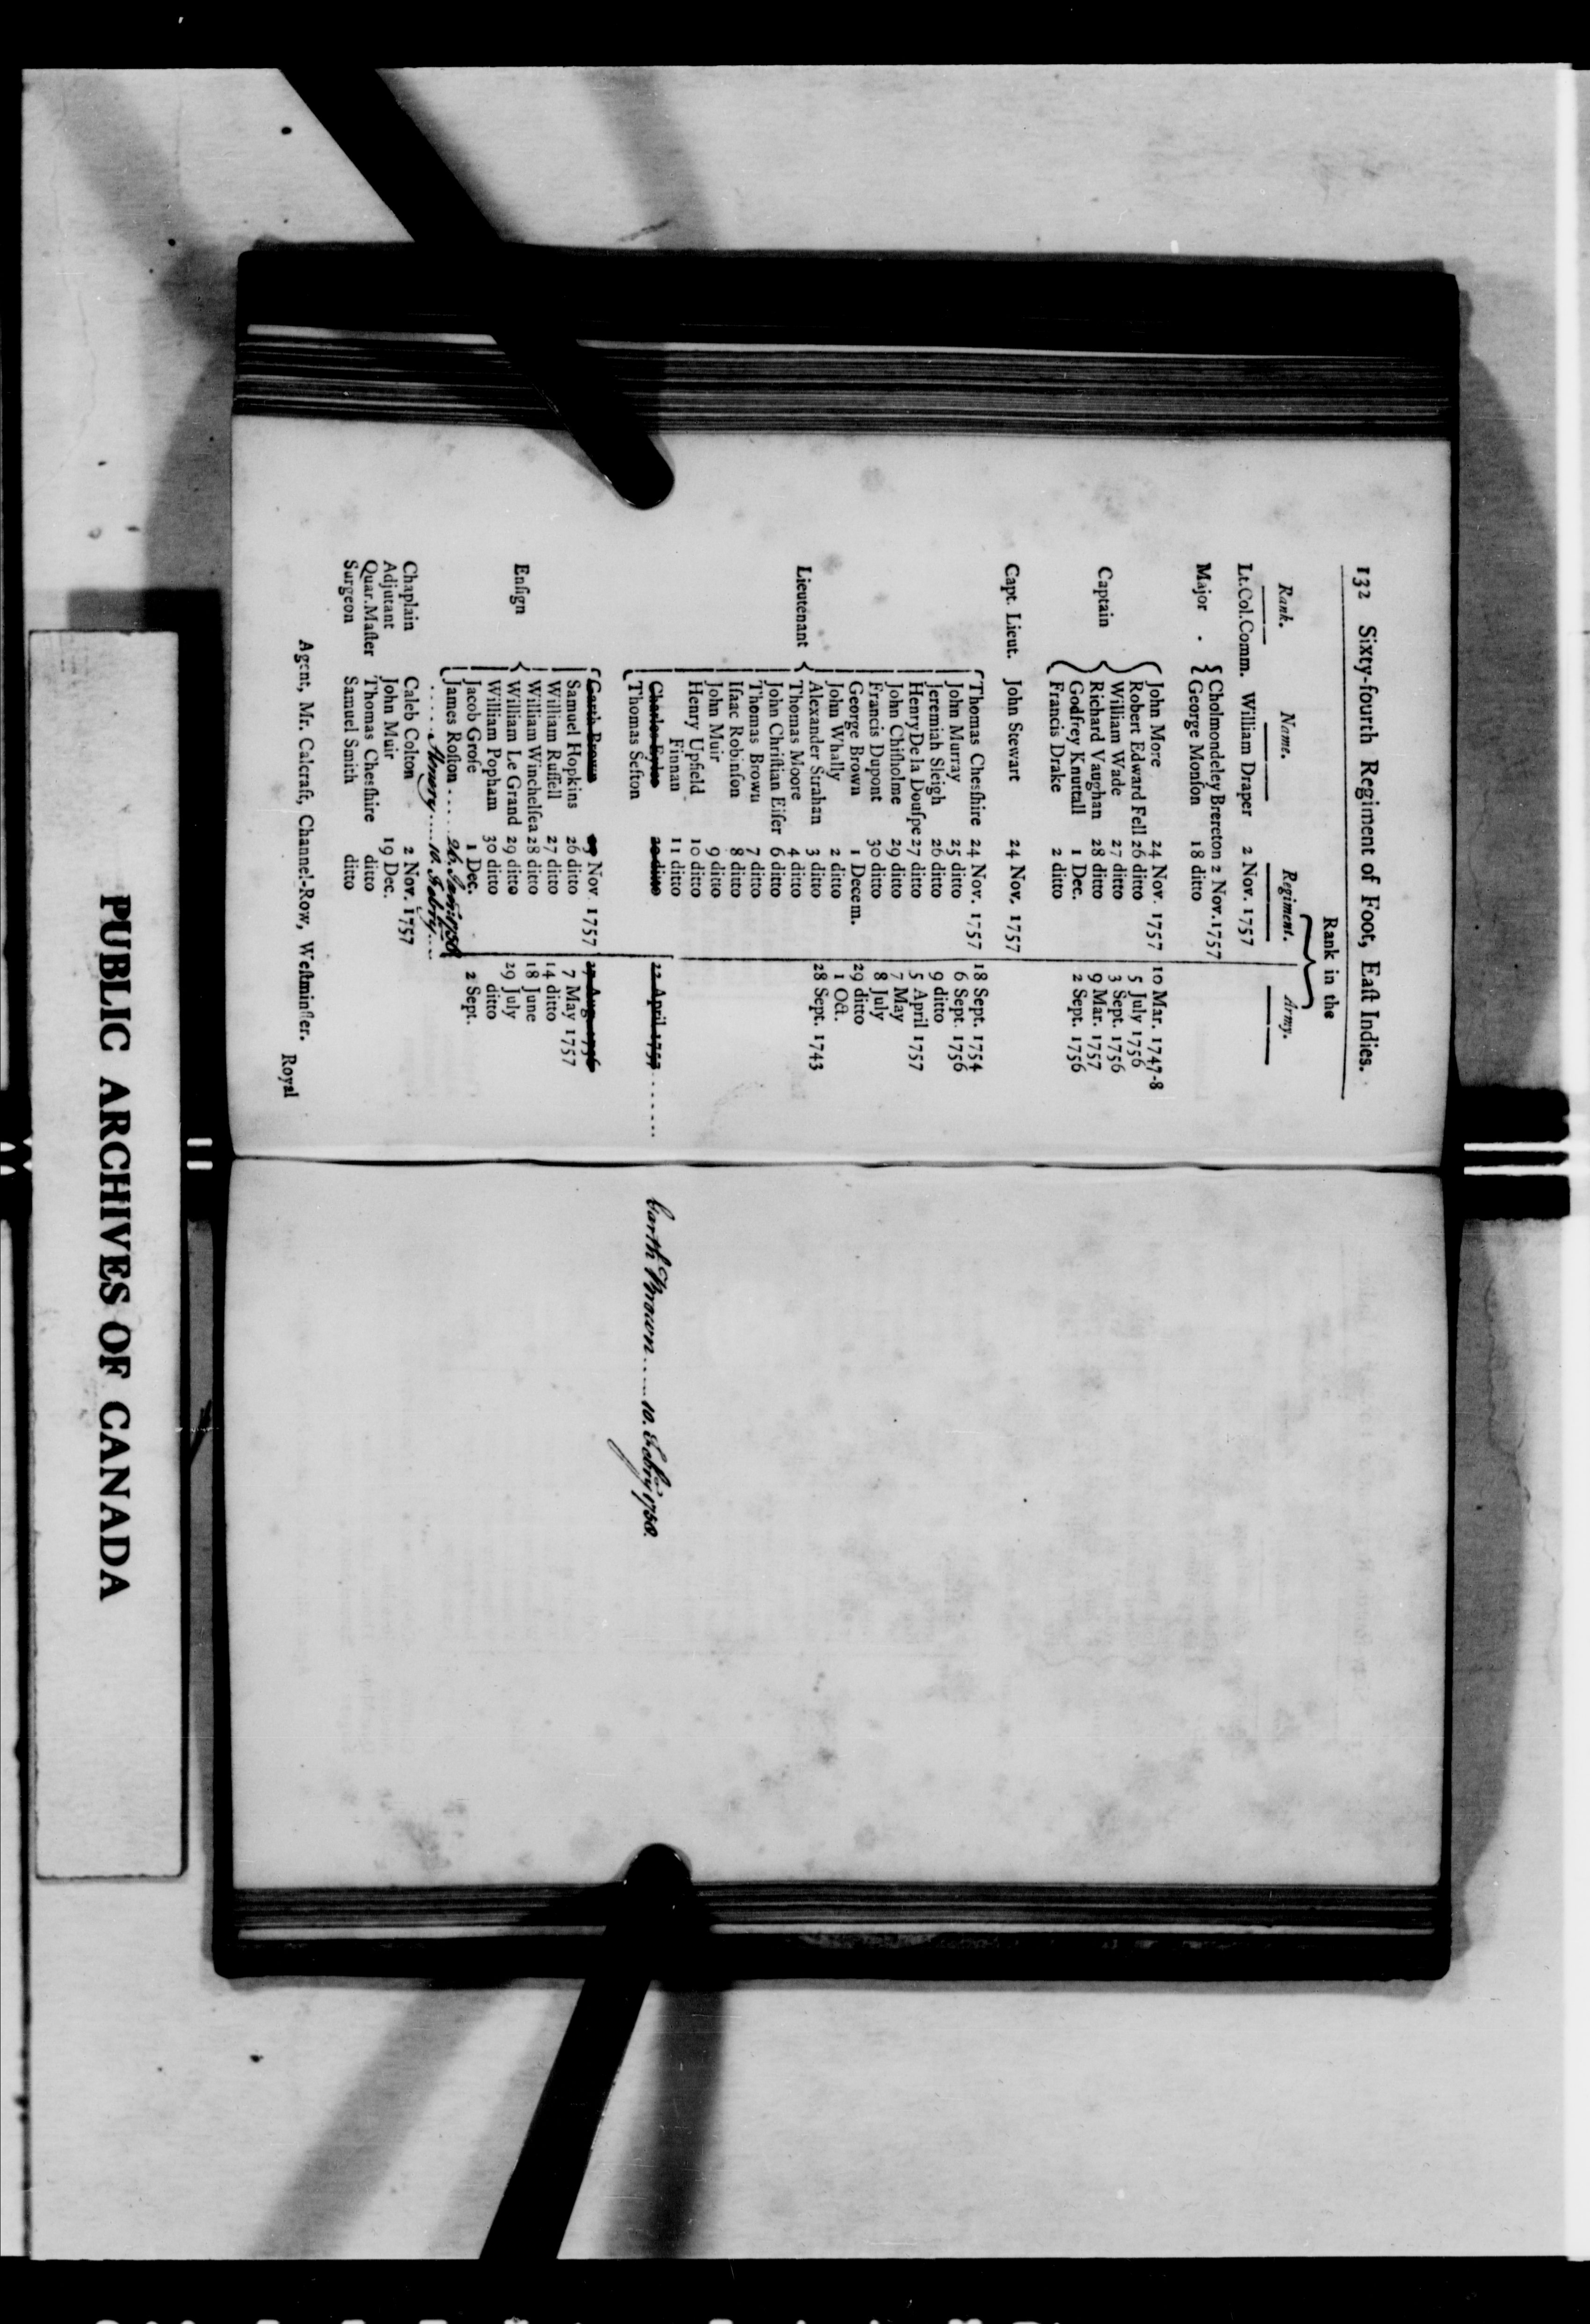 132 Sixty-fourth Regiment of Foot, Eaſt Indies.
Rank in the
Rank. Name. Regiment. Army.
Lt.Col.Comm. William Draper 2 Nov. 1757
Major { Cholmondeley Brereton 2 Nov. 1757
George Monſon 18 ditto
John More 24 Nov. 1757 10 Mar. 1747-8
Robert Edward Fell 26 ditto 5 July 1756
Captain { William Wade 27 ditto 3 Sept. 1756
Richard Vaughan 28 ditto 9 Mar. 1757
Godfrey Knuttall 1 Dec. 2 Sept. 1756
Francis Drake 2 ditto
Capt. Lieut. John Stewart 24 Nov. 1757
Thomas Cheſhire 24 Nov. 1757 18 Sept. 1754
John Murray 25 ditto 6 Sept. 1756
Jeremiah Sleigh 26 ditto 9 ditto
Henry De la Douſpe 27 ditto 5 April 1757
John Chiſholme 29 ditto 7 May
Francis Dupont 30 ditto 8 July
George Brown 1 Decem. 29 ditto
John Whally 2 ditto 1 Oct.
Alexander Strahan 3 ditto 28 Sept. 1743
Lieutenant { Thomas Moore 4 ditto
John Chriſtian Eiſer 6 ditto
Thomas Brown 7 ditto
Iſaac Robinſon 8 ditto
John Muir 9 ditto
Henry Upfield 10 ditto
Finnan 11 ditto
Charles Eyles 20 ditto 12 April 1757 ...... Garth Brown ...... 10. Febry 1758.
Thomas Sefton
Garth Brown Nov. 1757 27 Aug. 1756
Samuel Hopkins 26 ditto 7 May 1757
William Ruſſell 27 ditto 14 ditto
William Winchelſea 28 ditto 18 June
Enſign { William Le Grand 29 ditto 29 July
William Popham 30 ditto ditto
Jacob Groſe 1 Dec. 2 Sept.
James Roſton .... 26. Janry 1758
..... Henry ..... 10. Febry ....
Chaplain Caleb Colton 2 Nov. 1757
Adjutant John Muir 19 Dec.
Quar.Maſter Thomas Cheſhire ditto
Surgeon Samuel Smith ditto
Agent, Mr. Calcraft, Channel-Row, Weſtminſter.
Royal
PUBLIC ARCHIVES OF CANADA